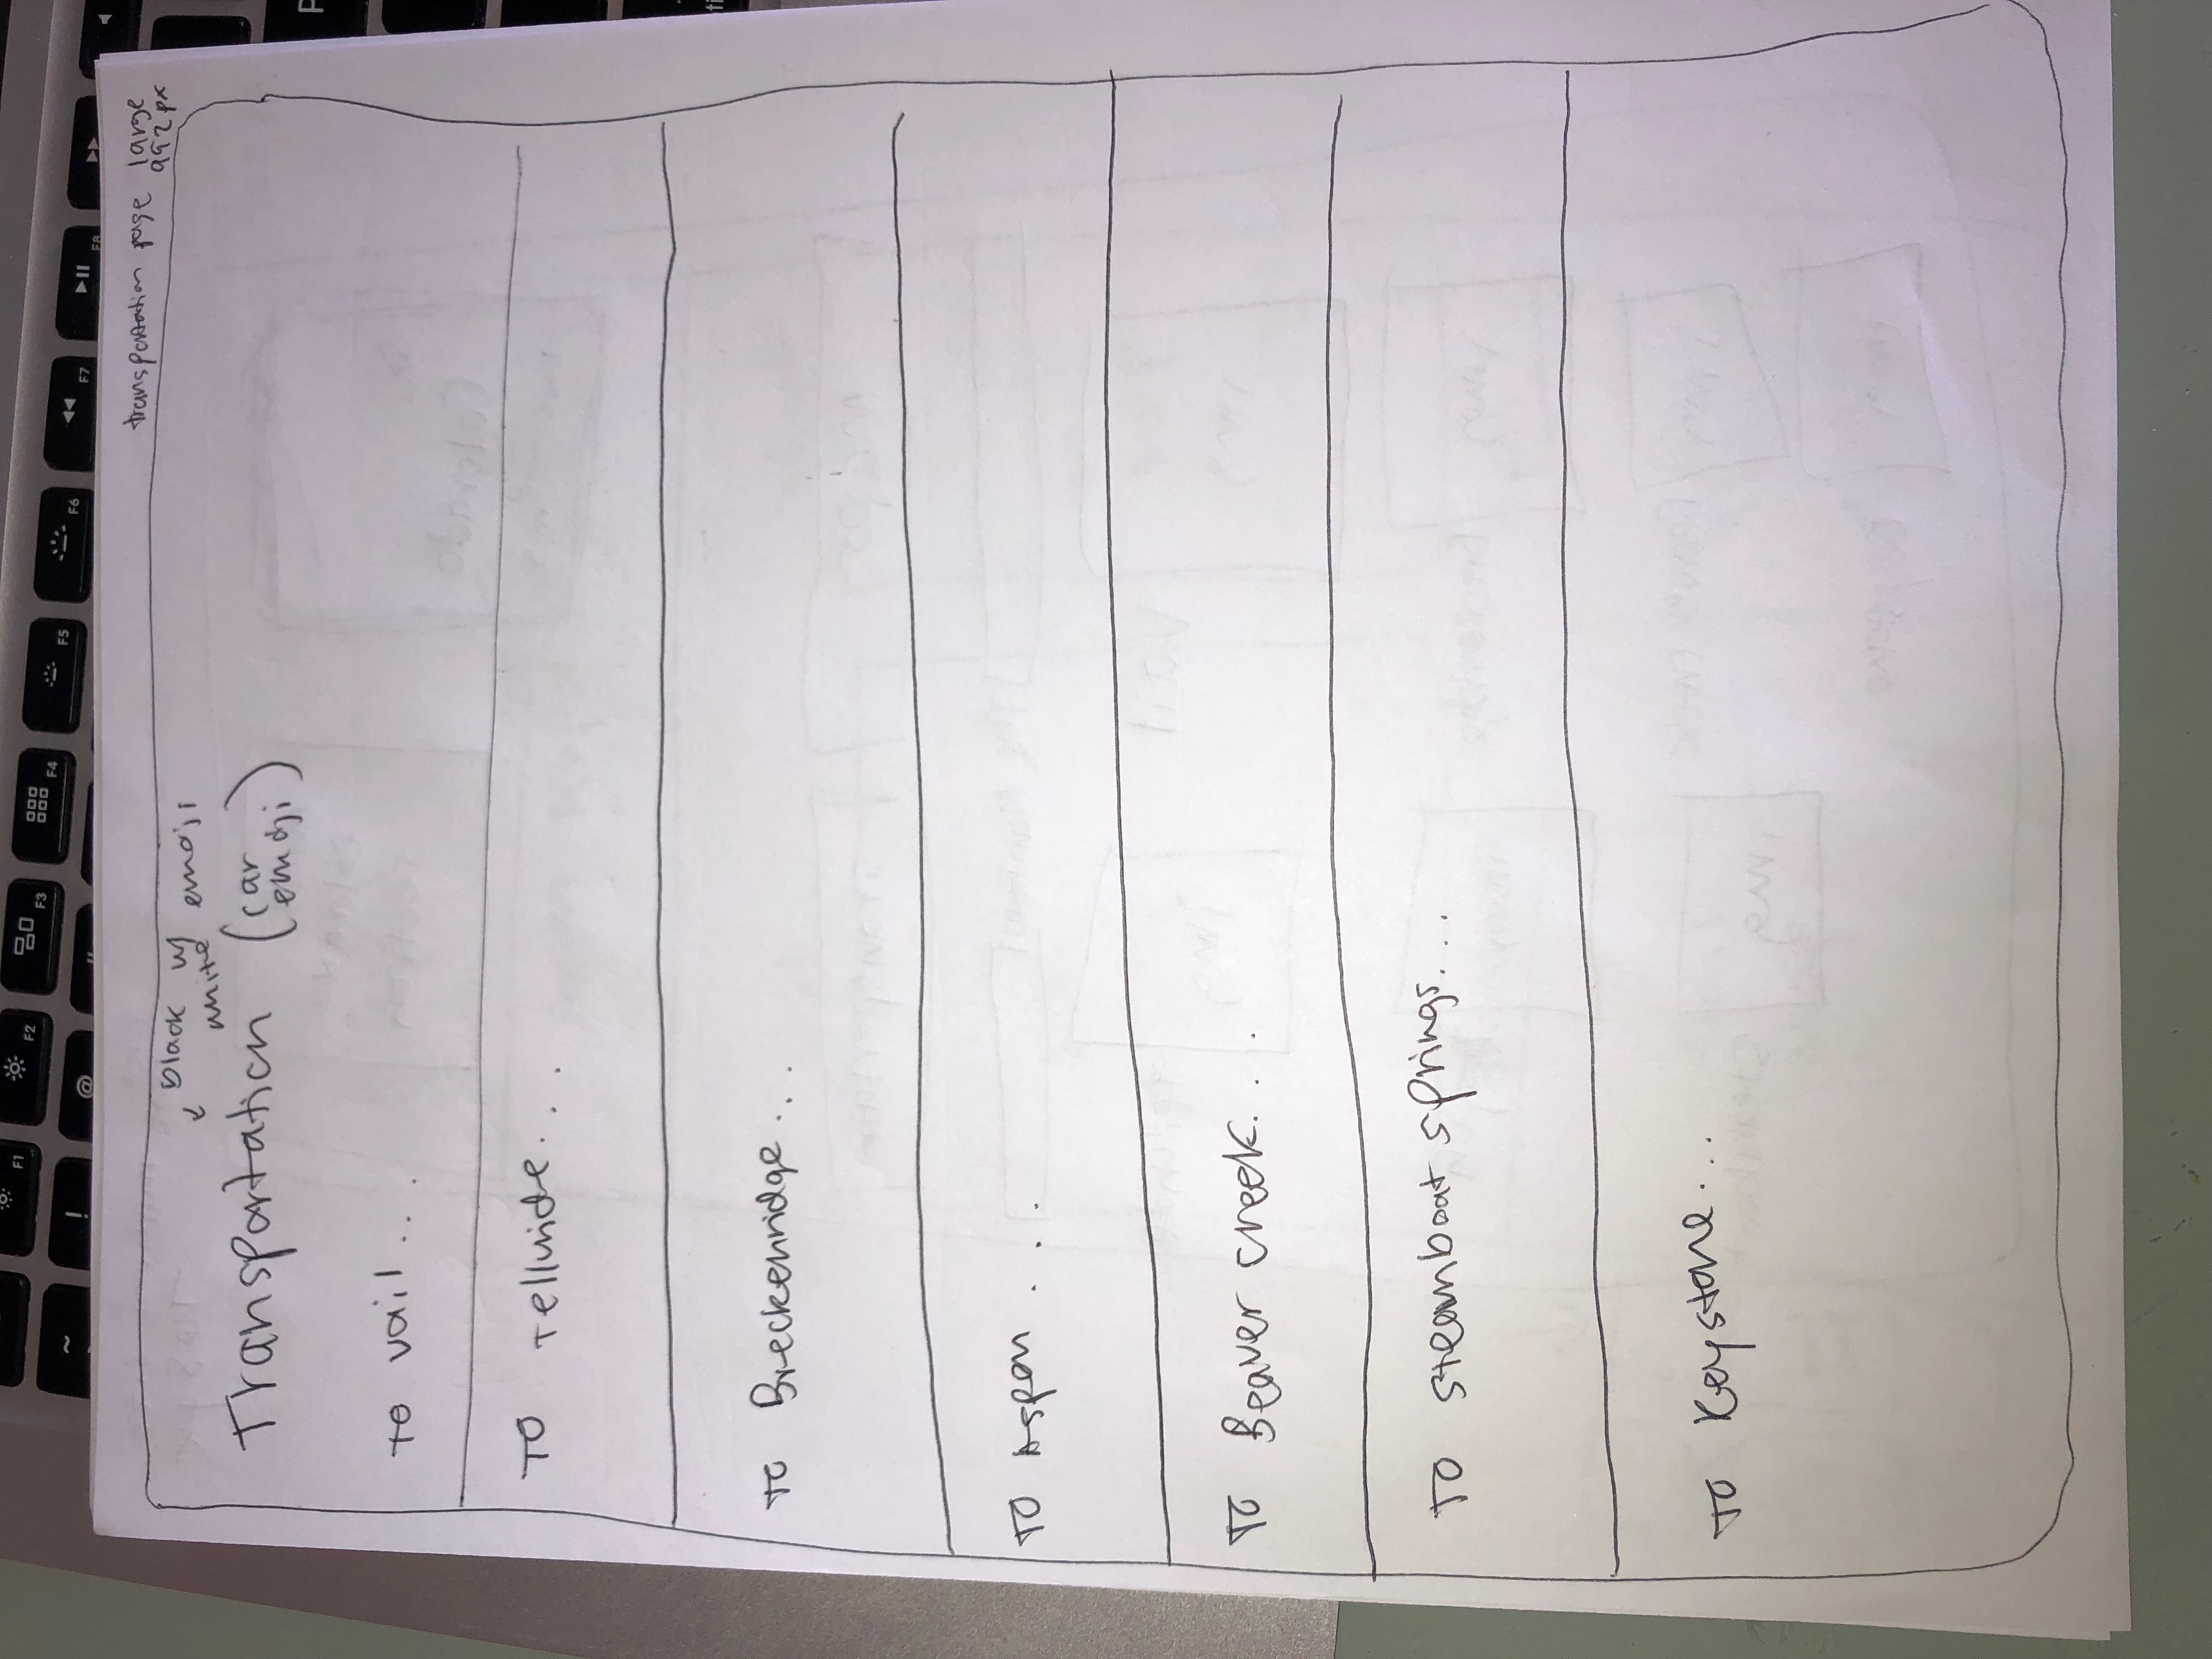 F1
F2
F3
F4
F5
F6
F7
F8
~
!
@
transportation page large
992 px
black w/
white emoji
Transportation (car
emoji)
To vail...
To Telluride...
To Breckenridge...
To Aspen ...
To Beaver Creek...
To steamboat springs...
To Keystone...